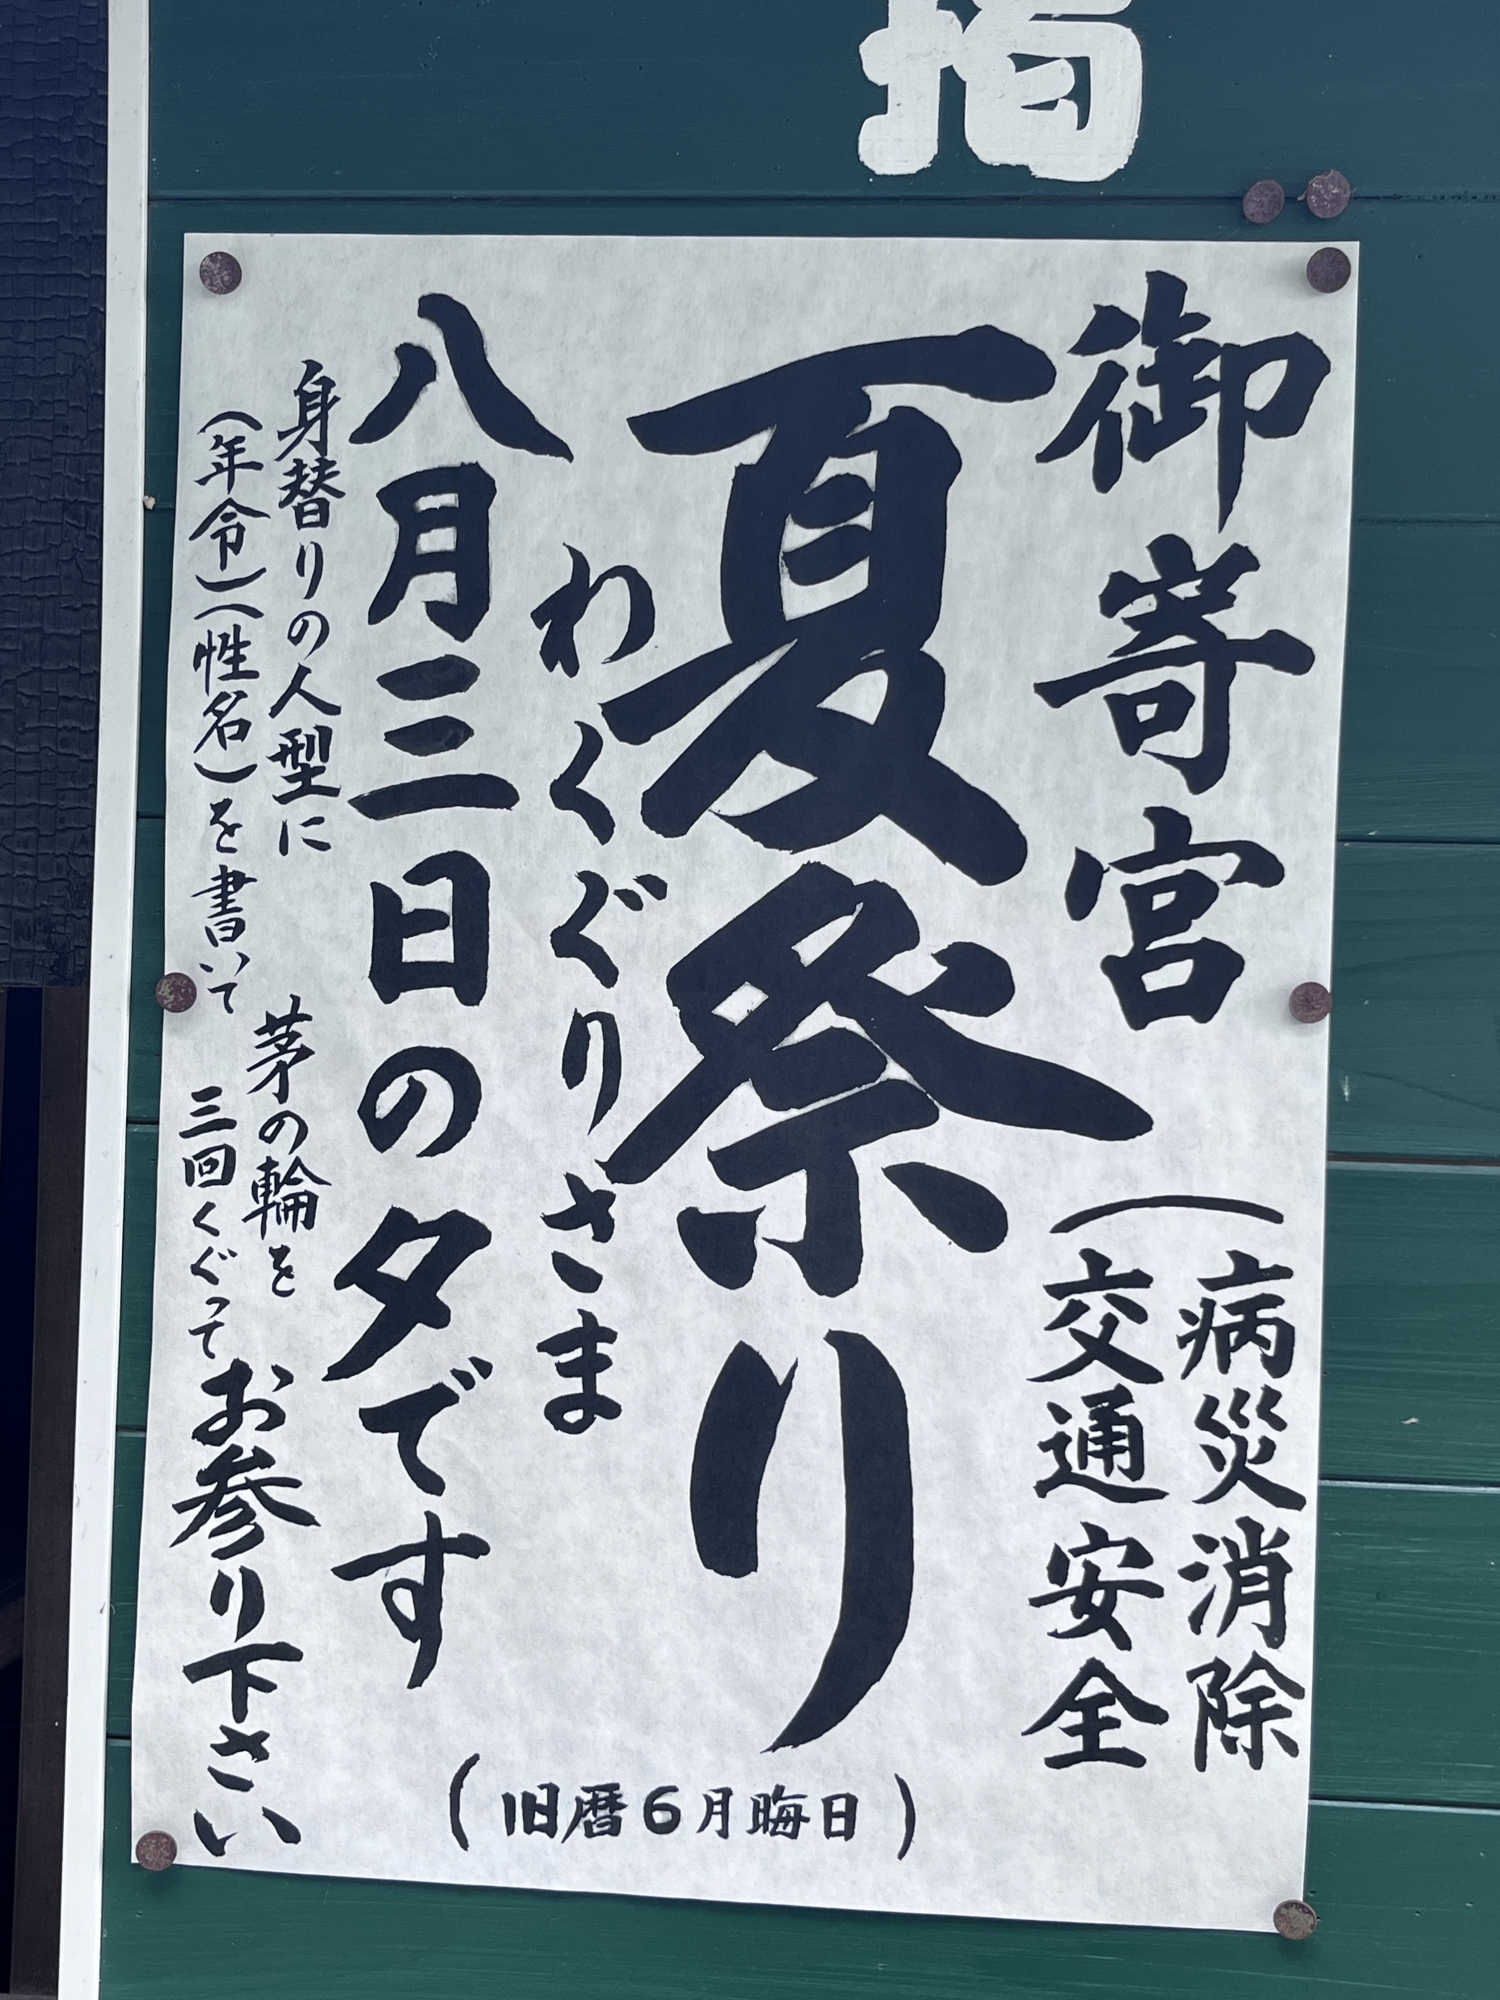 掲
御嵜宮
（病災消除
交通安全
夏祭り
わくぐりさま
（旧暦6月晦日）
八月三日の夕です
身替りの人型に
（年令）（性名）を書いて
茅の輪を
三回くぐって
お参り下さい